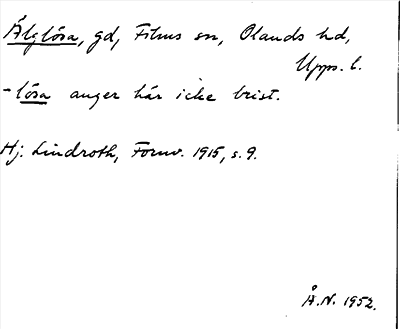 Älglösa, gd, Films sn, Olands hd,
Upps. l.
-lösa anger här icke brist.
Hj. Lindroth, Fornv. 1915, s. 9.
Å.N. 1952.